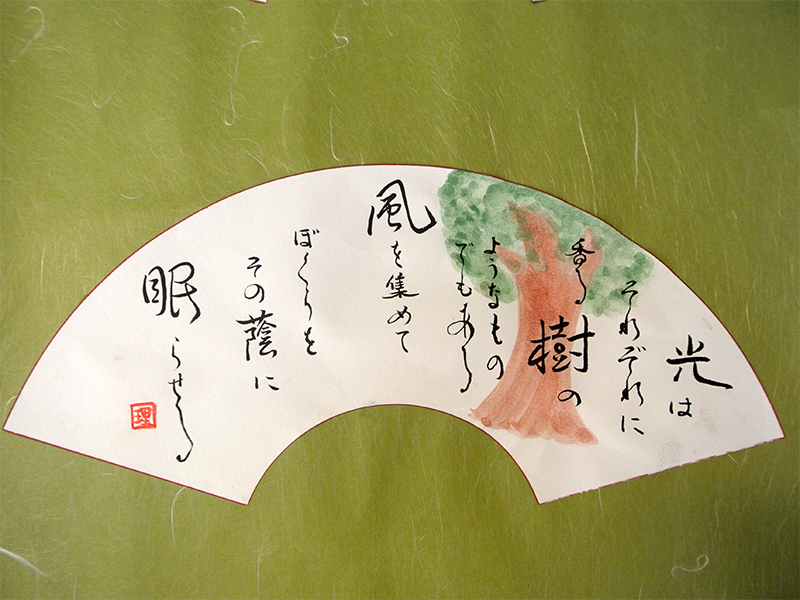 光は
それぞれに
香る樹の
ようなもの
でもある
風を集めて
ぼくらを
その蔭に
眠らせる
理